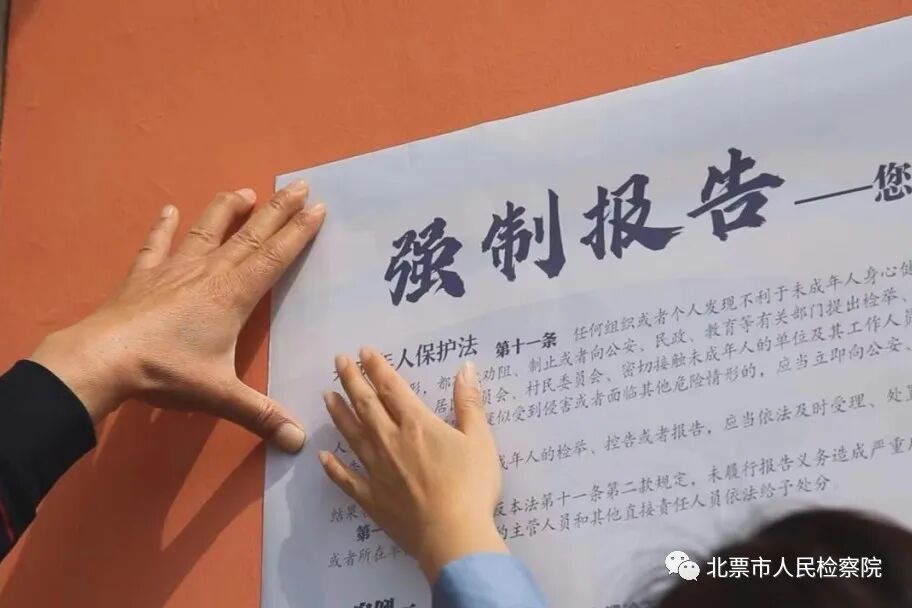 强制报告——您
人保护法 第十一条 任何组织或者个人发现不利于未成年人身心健
形，都 劝阻、制止或者向公安、民政、教育等有关部门提出检举、
居 员会、村民委员会、密切接触未成年人的单位及其工作人员
似受到侵害或者面临其他危险情形的，应当立即向公安、
成年人的检举、控告或者报告，应当依法及时受理、处置
反本法第十一条第二款规定，未履行报告义务造成严重后
结果
第一
的主管人员和其他直接责任人员依法给予处分。
或者所在单
北票市人民检察院